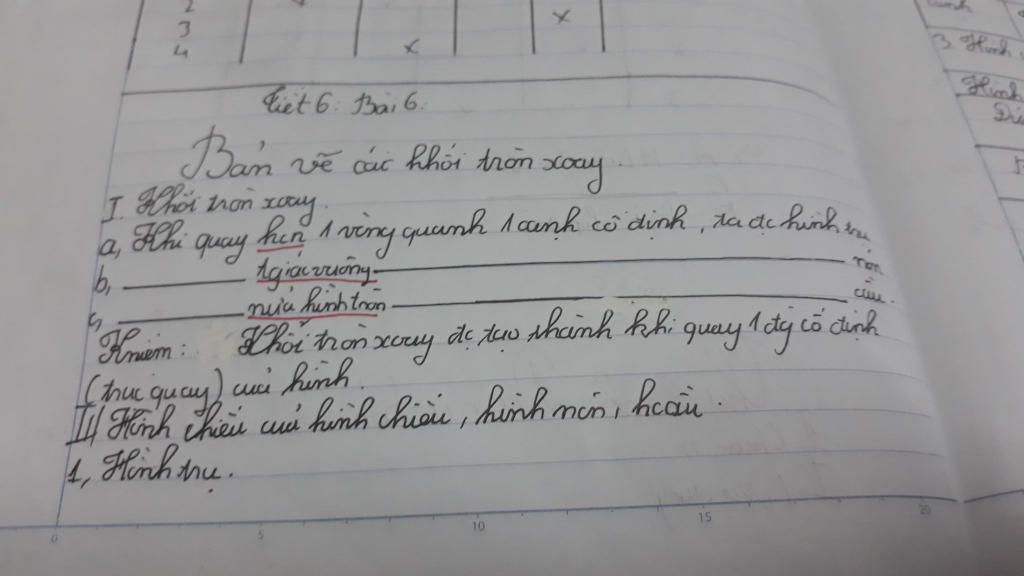 2
3 x
4 x
Tiết 6: Bài 6.
Bản vẽ các khối tròn xoay.
I. Khối tròn xoay.
a, Khi quay hcn 1 vòng quanh 1 cạnh cố định, ta đc hình trụ
b, tgiác vuông nón
c, nửa hình tròn cầu.
Kniệm: Khối tròn xoay đc tạo thành khi quay 1 đg cố định
(trục quay) của hình.
III/ Hình chiếu của hình chiếu, hình nón, hcầu.
1, Hình trụ.
0 5 10 15 20
3. Hình
Hình